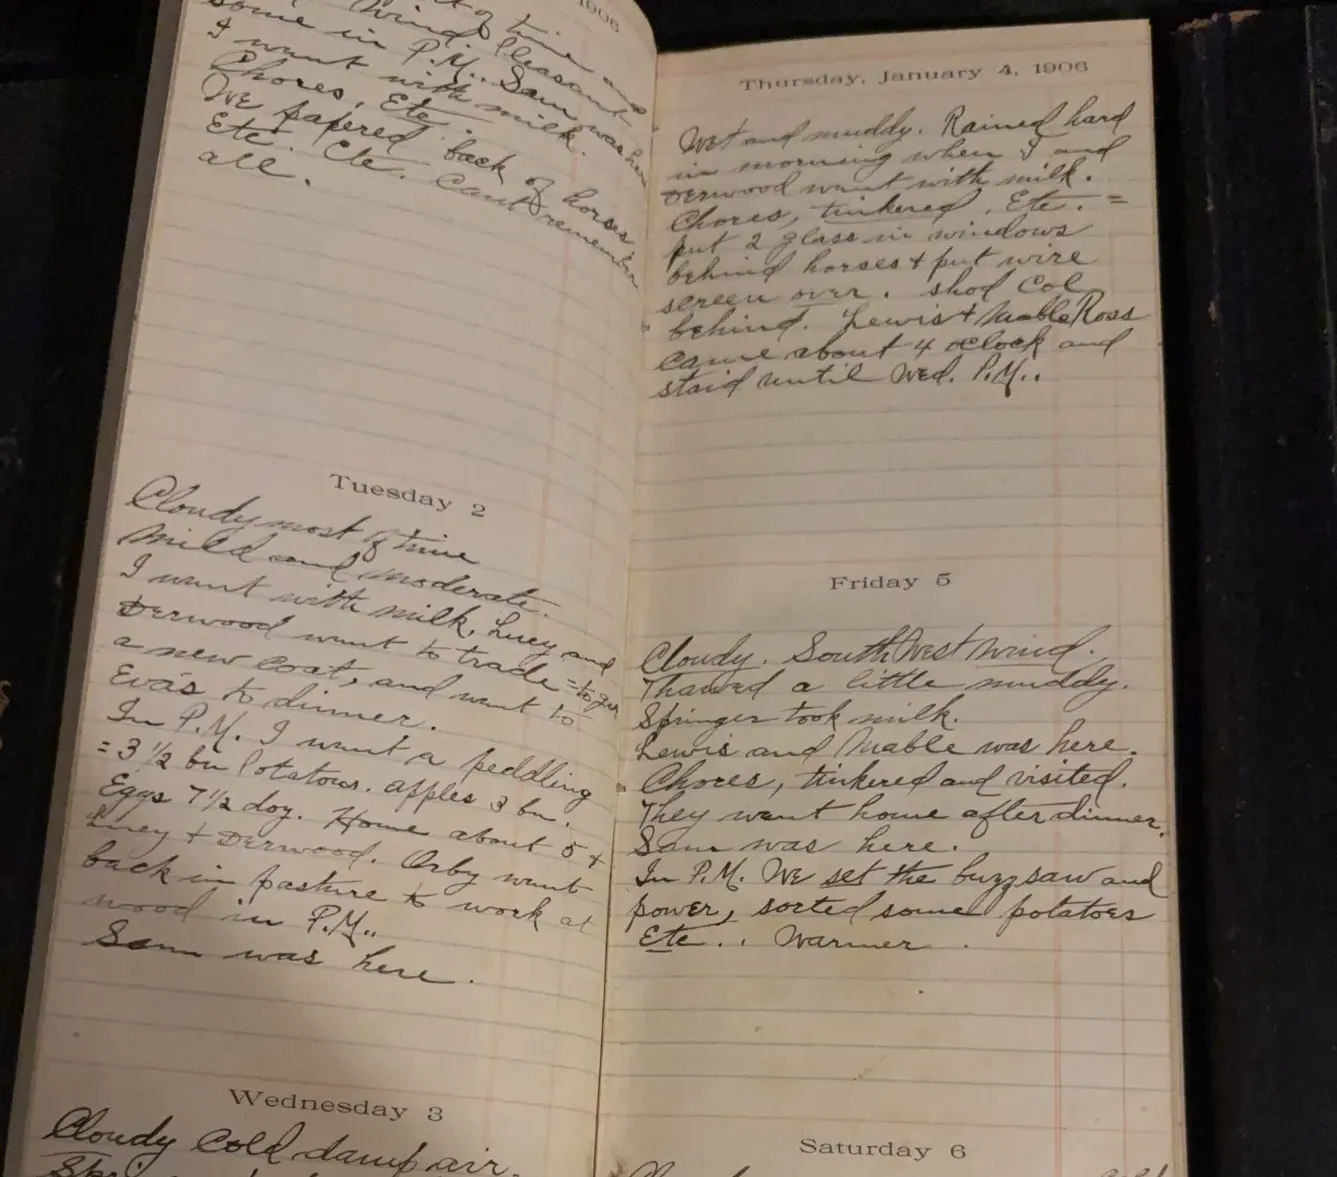 1906
of time and
Wind Pleasant
some in P.M.. Sam was here
I went with milk.
Chores, Etc.
We papered back of horses
Etc. Etc. Cant remember
all.
Tuesday 2
Cloudy most of time
Mild and moderate.
I went with milk. Lucy and
Derwood went to trade = to get
a new coat, and went to
Eva's to dinner.
In P.M. I went a peddling
= 3 1/2 bu Potatows. apples 3 bu.
Eggs 7 1/2 doz. Home about 5 +
Lucy + Derwood. Orby went
back in pasture to work at
wood in P.M..
Sam was here.
Wednesday 3
Cloudy Cold damp air.
Thursday, January 4, 1906
Wet and muddy. Rained hard
in morning when I and
Derwood went with milk.
Chores, tinkered, Etc. =
put 2 glass in windows
behind horses + put wire
screen over. shod Col
behind. Lewis + Mable Ross
came about 4 oclock and
staid until Wed. P.M..
Friday 5
Cloudy. South West Wind.
Thawed a little muddy.
Springer took milk.
Lewis and Mable was here.
Chores, tinkered and visited.
They went home after dinner.
Sam was here.
In P.M. We set the buzz saw and
power, sorted some potatoes
Etc.. Warmer.
Saturday 6